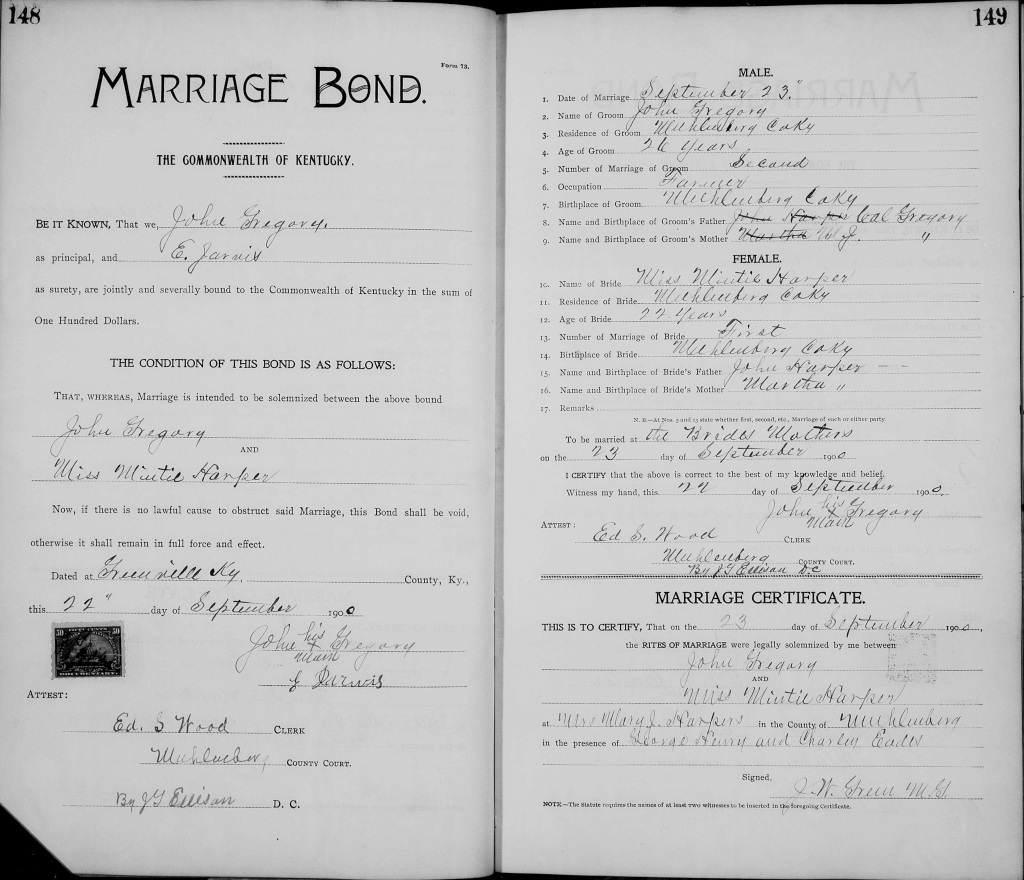 148
Form 73.
MARRIAGE BOND.
THE COMMONWEALTH OF KENTUCKY.
BE IT KNOWN, That we, John Gregory.
as principal, and E. Jarvis
as surety, are jointly and severally bound to the Commonwealth of Kentucky in the sum of
One Hundred Dollars.
THE CONDITION OF THIS BOND IS AS FOLLOWS:
THAT, WHEREAS, Marriage is intended to be solemnized between the above bound
John Gregory
AND
Miss Mintie Harper
Now, if there is no lawful cause to obstruct said Marriage, this Bond shall be void,
otherwise it shall remain in full force and effect.
Dated at Greenville Ky. County, Ky.,
this 22" day of September 1900
John his x mark Gregory
E Jarvis
50 FIFTY CENTS 50
DOCUMENTARY
ATTEST:
Ed. S Wood CLERK
Muhlenberg COUNTY COURT.
By J G Ellison D. C.
149
MALE.
1. Date of Marriage September 23"
2. Name of Groom John Gregory
3. Residence of Groom Muhlenberg Co Ky
4. Age of Groom 26 years
5. Number of Marriage of Groom Second
6. Occupation Farmer
7. Birthplace of Groom Muhlenberg Co Ky
8. Name and Birthplace of Groom's Father John Harper Cal Gregory
9. Name and Birthplace of Groom's Mother Martha M. J. "
FEMALE.
10. Name of Bride Miss Mintie Harper
11. Residence of Bride Muhlenberg Co Ky
12. Age of Bride 22 years
13. Number of Marriage of Bride First
14. Birthplace of Bride Muhlenberg Co Ky
15. Name and Birthplace of Bride's Father John Harper
16. Name and Birthplace of Bride's Mother Martha "
17. Remarks
N. B.—At Nos. 5 and 13 state whether first, second, etc., Marriage of each or either party.
To be married at the Brides Mothers
on the 23 day of September 1900
I CERTIFY that the above is correct to the best of my knowledge and belief.
Witness my hand, this 22 day of September 1900.
John his x mark Gregory
ATTEST:
Ed S. Wood CLERK
Muhlenberg COUNTY COURT.
By J G Ellison D C
MARRIAGE CERTIFICATE.
THIS IS TO CERTIFY, That on the 23 day of September 1900,
the RITES OF MARRIAGE were legally solemnized by me between
John Gregory
AND
Miss Mintie Harper
at Mrs Mary J. Harpers in the County of Muhlenberg
in the presence of George Henry and Charley Eades
Signed,
J. W. Green M. G.
NOTE.—The Statute requires the names of at least two witnesses to be inserted in the foregoing Certificate.